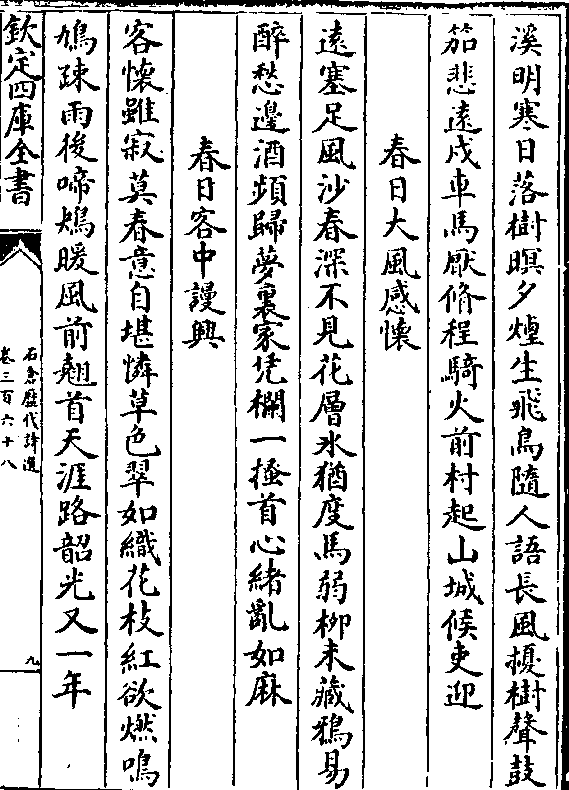 溪明寒日落樹暝夕煙生飛鳥隨人語長風擾樹聲鼓
笳悲遠戍車馬厭脩程騎火前村起山城候吏迎
春日大風感懷
遠塞足風沙春深不見花層氷猶度馬弱柳未藏鴉易
醉愁邊酒頻歸夢裏家凭欄一搔首心緒亂如麻
春日客中謾興
客懷雖寂莫春意自堪憐草色翠如織花枝紅欲燃鳴
鳩疎雨後啼鴂暖風前翹首天涯路韶光又一年
欽定四庫全書
石倉歷代詩選
卷三百六十八
九